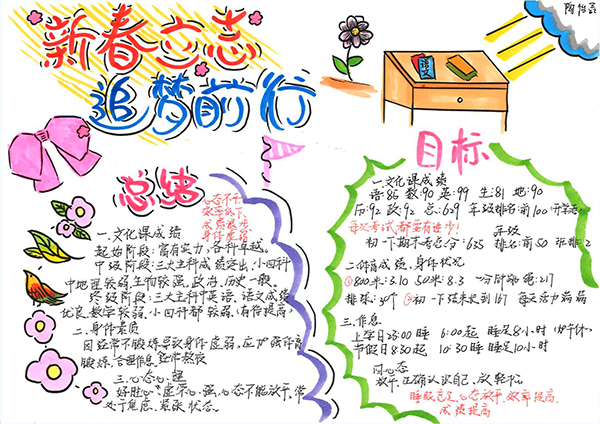 新春立志
追梦前行
语文
总结
心态不平
效率低下
成绩退步
身体虚弱
一.文化课成绩
起始阶段:富有实力,各科卓越。
中级阶段:三大主科成绩突出,小四科
中地理较弱,生物较强,政治.历史一般。
终级阶段:三大主科中英语.语文成绩
优良,数学较弱.小四科都较弱.(有待提高)
二.身体素质
因经常不锻炼导致身体虚弱,应加强体育
锻炼,合理作息
三.心态心理
好胜心,虚荣心强,心态不能放平,常
处于焦虑、紧张状态。
目标
一.文化课成绩
语:85 数:90 英:99 生:81 地:90
历:92 政:92 总:629 年级排名:前100(开学考)
每次考试都要有进步!
初一下期末考总分:635 年级排名:前50 班排:2
二.体育成绩.身体状况
①800米:3.10 50米:8.3 一分钟跳绳:217
排球:40个 ②初一下结束长到167
三.作息
上学日23:00睡 6:00起 睡足8小时(加午休)
节假日8:30起 10:30睡 睡足10小时
四.心态
放平,正确认识自己,放轻松。
睡眠充足,心态放平,效率提高,
成绩提高